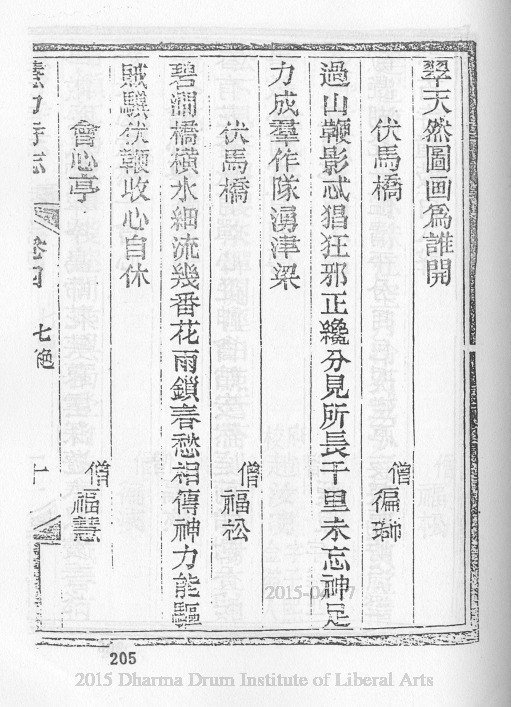 翠天然圖画爲誰開
伏馬橋
僧徧
過山鞭影忒猖狂邪正纔分見所長千里未忘神足
力成羣作隊湧津梁
伏馬橋
僧福松
碧澗橋横水細流幾番花雨鎖春愁相傳神力能驅
賊驥伏鞭收心自休
會心亭
僧福慧
慧力寺志
卷四
七絶
十
205
2015 Dharma Drum Institute of Liberal Arts